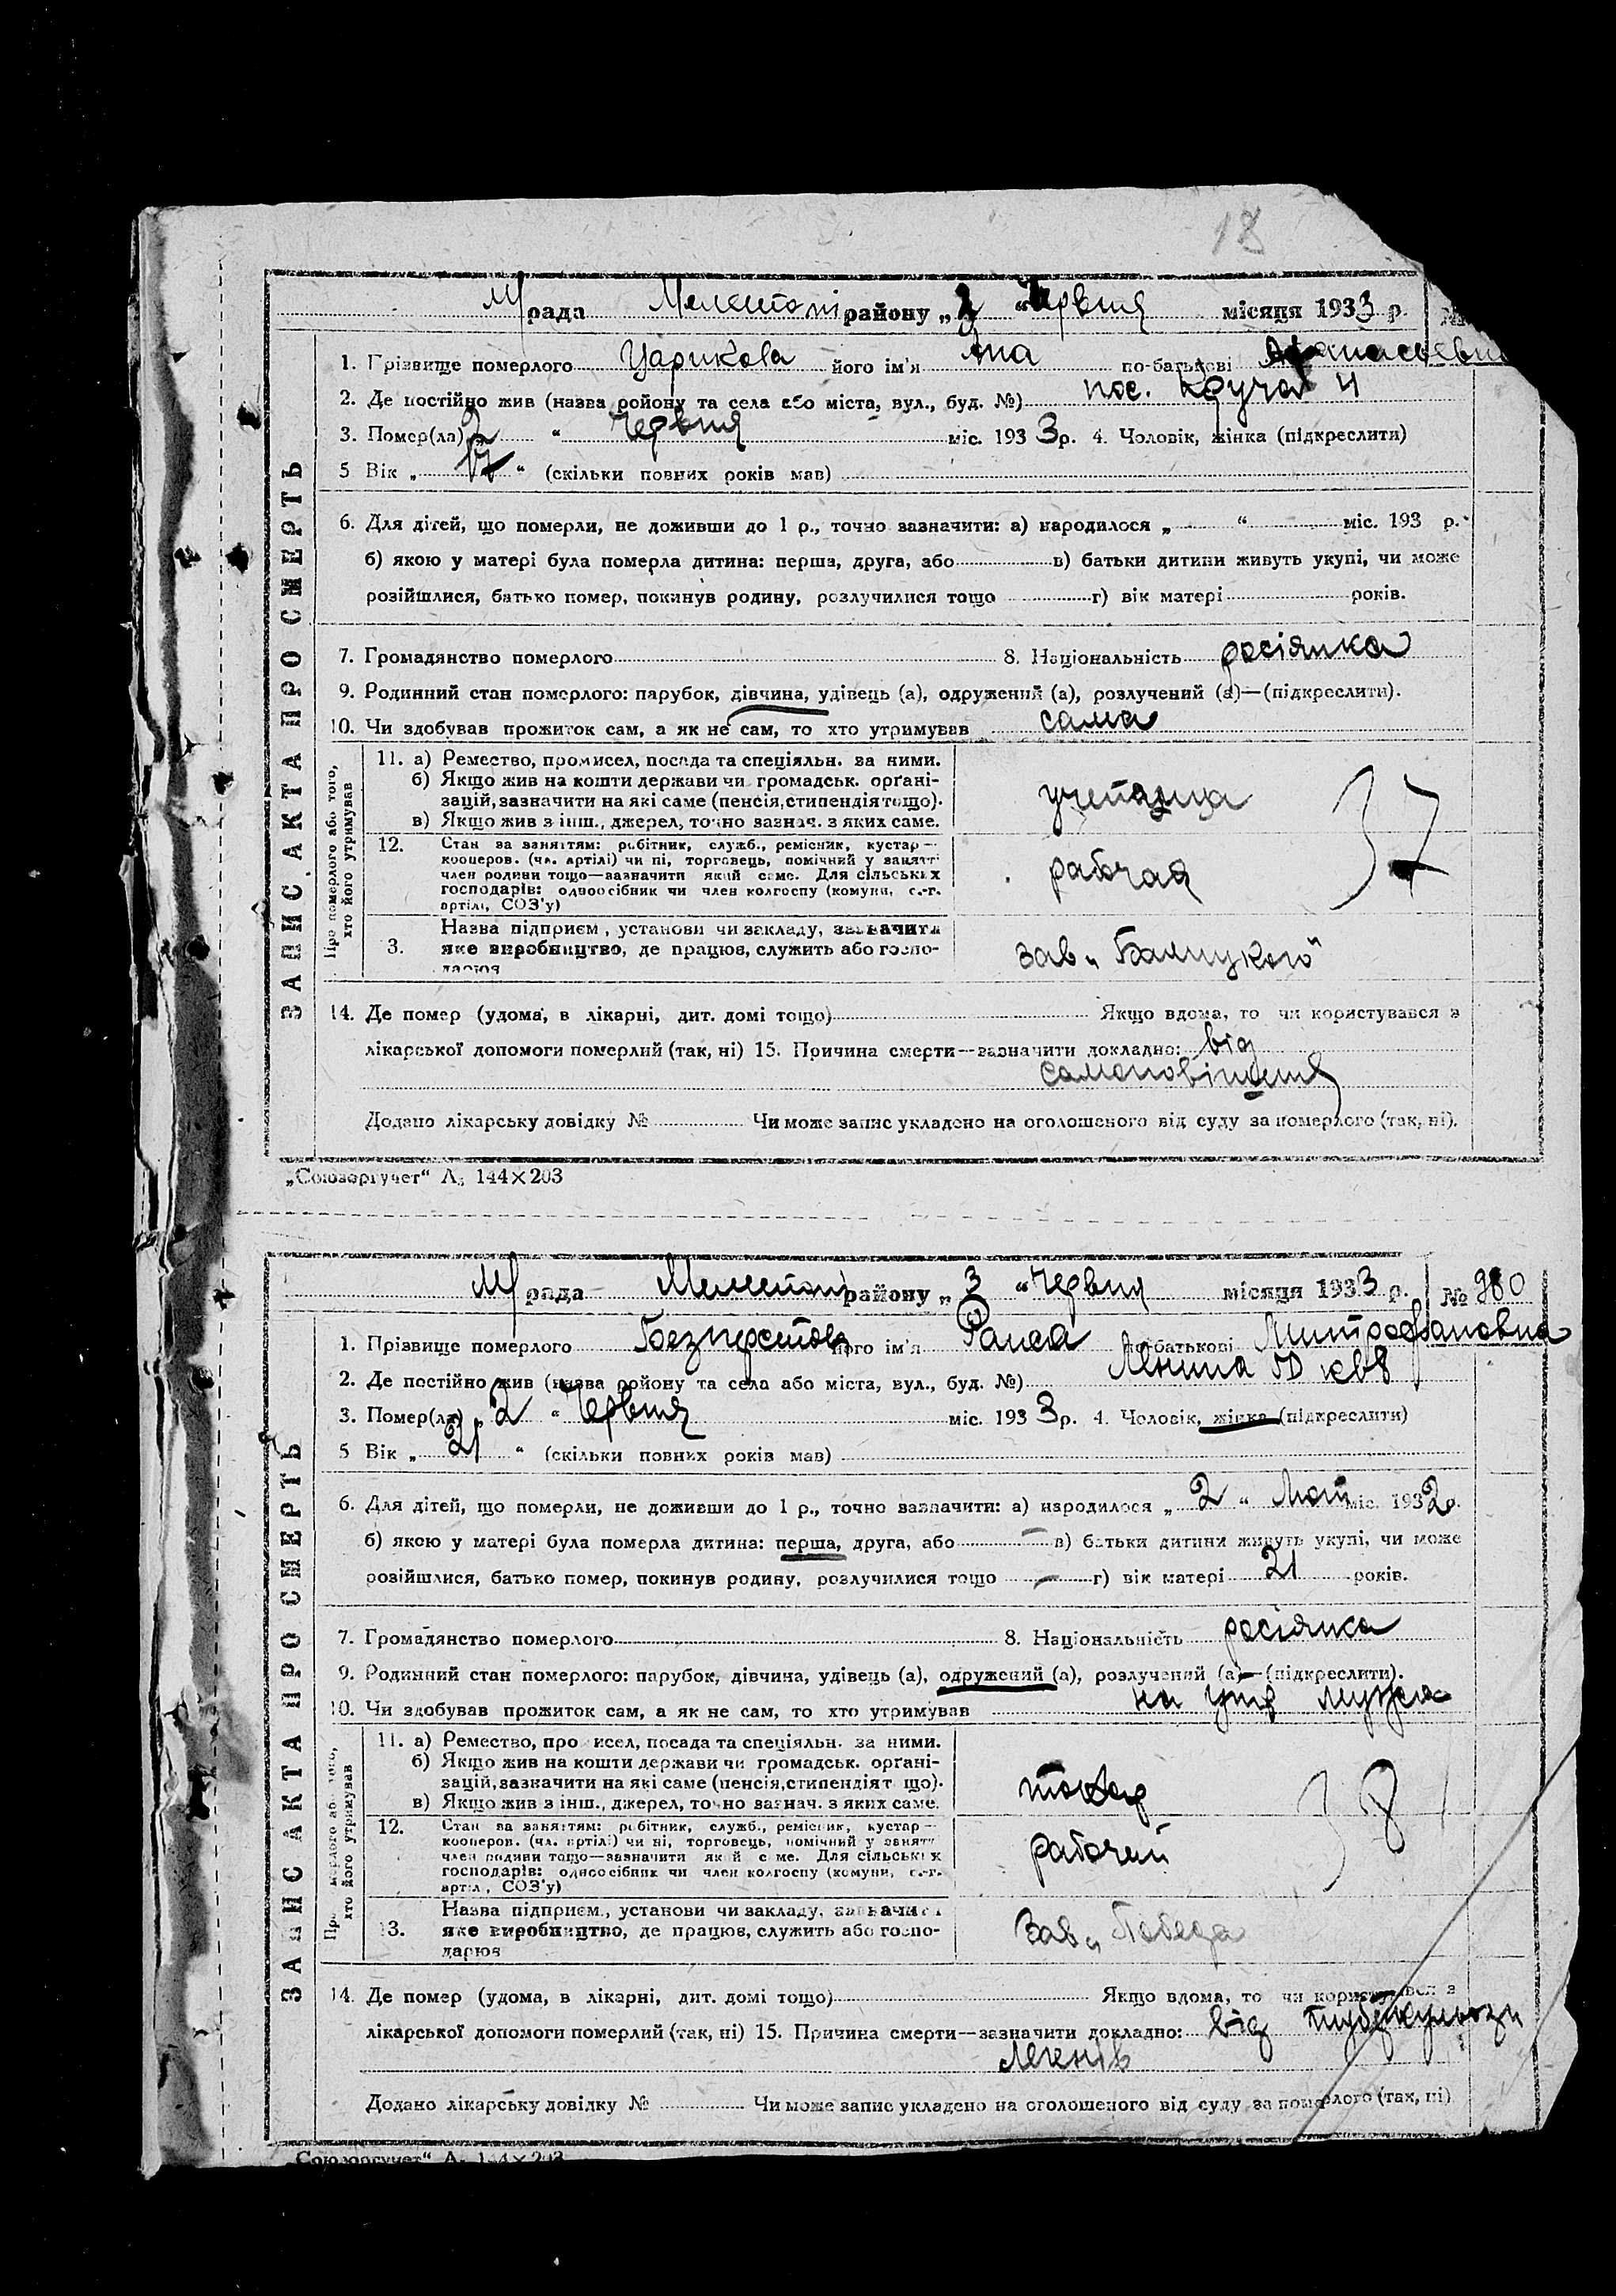 18
М/рада Мелитопі району „3 “ Червня місяця 1933 р.
1. Прізвище померлого Царикова його ім'я Ана по-батькові Афанасьевна
2. Де постійно жив (назва району та села або міста, вул., буд. №) пос. Круча 4
3. Помер(ла) 2 “ Червня міс. 193 3 р. 4. Чоловік, жінка (підкреслити)
5 Вік „ 17 “ (скільки повних років мав)
6. Для дітей, що померли, не доживши до 1 р., точно зазначити: а) народилося „ “ міс. 193 р.
б) якою у матері була померла дитина: перша, друга, або в) батьки дитини живуть укупі, чи може
розійшлися, батько помер, покинув родину, розлучилися тощо г) вік матері років.
7. Громадянство померлого 8. Національність росіянка
9. Родинний стан померлого: парубок, дівчина, удівець (а), одружений (а), розлучений (а)—(підкреслити).
10. Чи здобував прожиток сам, а як не сам, то хто утримував сама
ЗАПИС АКТА ПРО СМЕРТЬ
Про померлого або того, хто його утримував
11. а) Ремество, промисел, посада та спеціяльн. за ними.
б) Якщо жив на кошти держави чи громадськ. орґані-
зацій, зазначити на які саме (пенсія, стипендія тощо).
в) Якщо жив з інш., джерел, точно зазнач. з яких саме.
ученица
37
12. Стан за заняттям: робітник, служб., ремісник, кустар—
кооперов. (чл. артілі) чи ні, торговець, помічний у занятті
член родини тощо—зазначити який саме. Для сільських
господарів: одноосібник чи член колгоспу (комуни, с.-г.
артілі, СОЗ'у)
рабочая
3. Назва підприєм, установи чи закладу, зазначити
яке виробництво, де працює, служить або госпо-
дарює
зав „Балицкого“
14. Де помер (удома, в лікарні, дит. домі тощо) Якщо вдома, то чи користувався з
лікарської допомоги померлий (так, ні) 15. Причина смерти—зазначити докладно: від
самоповішення
Додано лікарську довідку № Чи може запис укладено на оголошеного від суду за померлого (так, ні).
„Союзоргучет“ А5 144×203
М/рада Мелитопі району „ 3 “ Червня місяця 1933 р. № 980
1. Прізвище померлого Безперстова його ім'я Раиса по-батькові Митрофановна
2. Де постійно жив (назва району та села або міста, вул., буд. №) Ленина 50 кв 8
3. Помер(ла) „ 2 “ Червня міс. 193 3 р. 4. Чоловік, жінка (підкреслити)
5 Вік „ 21 “ (скільки повних років мав)
6. Для дітей, що померли, не доживши до 1 р., точно зазначити: а) народилося „ 2 “ Мая міс. 1932 р.
б) якою у матері була померла дитина: перша, друга, або — в) батьки дитини живуть укупі, чи може
розійшлися, батько помер, покинув родину, розлучилися тощо — г) вік матері 21 років.
7. Громадянство померлого 8. Національність росіянка
9. Родинний стан померлого: парубок, дівчина, удівець (а), одружений (а), розлучений (а)—(підкреслити).
10. Чи здобував прожиток сам, а як не сам, то хто утримував на утр мужа
ЗАПИС АКТА ПРО СМЕРТЬ
11. а) Ремество, про исел, посада та спеціяльн. за ними.
б) Якщо жив на кошти держави чи громадськ. орґані-
зацій, зазначити на які саме (пенсія, стипендія т що).
в) Якщо жив з інш., джерел, точно зазнач. з яких саме.
токар
38
12. Стан за заняттям: робітник, служб., ремісник, кустар—
кооперов. (чл. артілі) чи ні, торговець, помічний у занятті
член родини тощо—зазначити який саме. Для сільських
господарів: одноосібник чи член колгоспу (комуни, с.-г.
артіл, СОЗ'у)
рабочий
13. Назва підприєм., установи чи закладу, зазначити
яке виробництво, де працює, служить або госпо-
дарює
Зав „Победа
14. Де помер (удома, в лікарні, дит. домі тощо) Якщо вдома, то чи користувався з
лікарської допомоги померлий (так, ні) 15. Причина смерти—зазначити докладно: від туберкульози
легенів
Додано лікарську довідку № Чи може запис укладено на оголошеного від суду за померлого (так, ні)
Союзоргучет“ А5 144×203